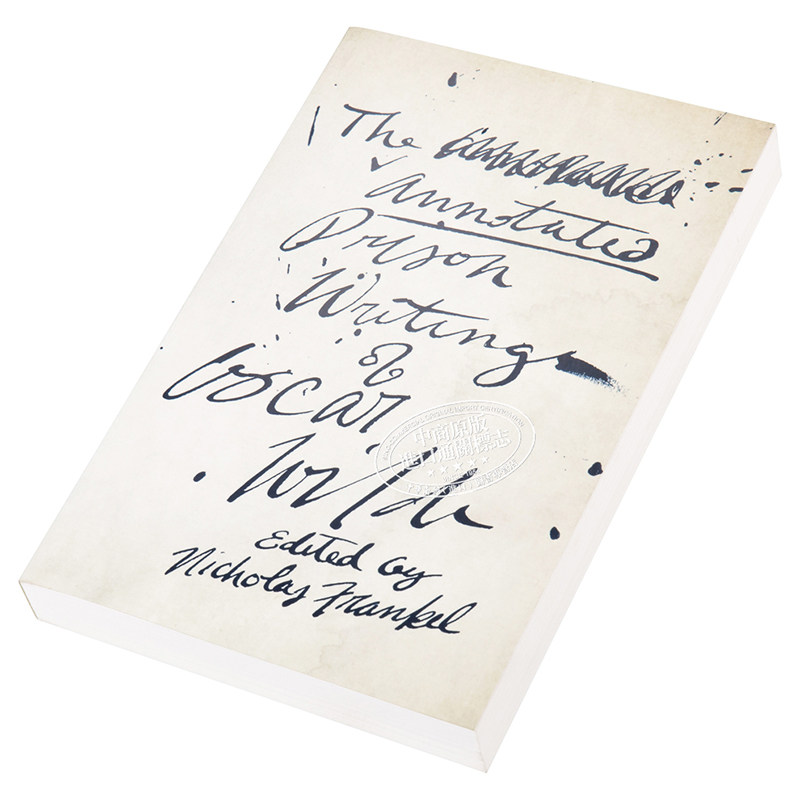 The
annotated
Prison
Writings
of
Oscar
Wilde
Edited by
Nicholas Frankel
中商原版
进口商圈標志